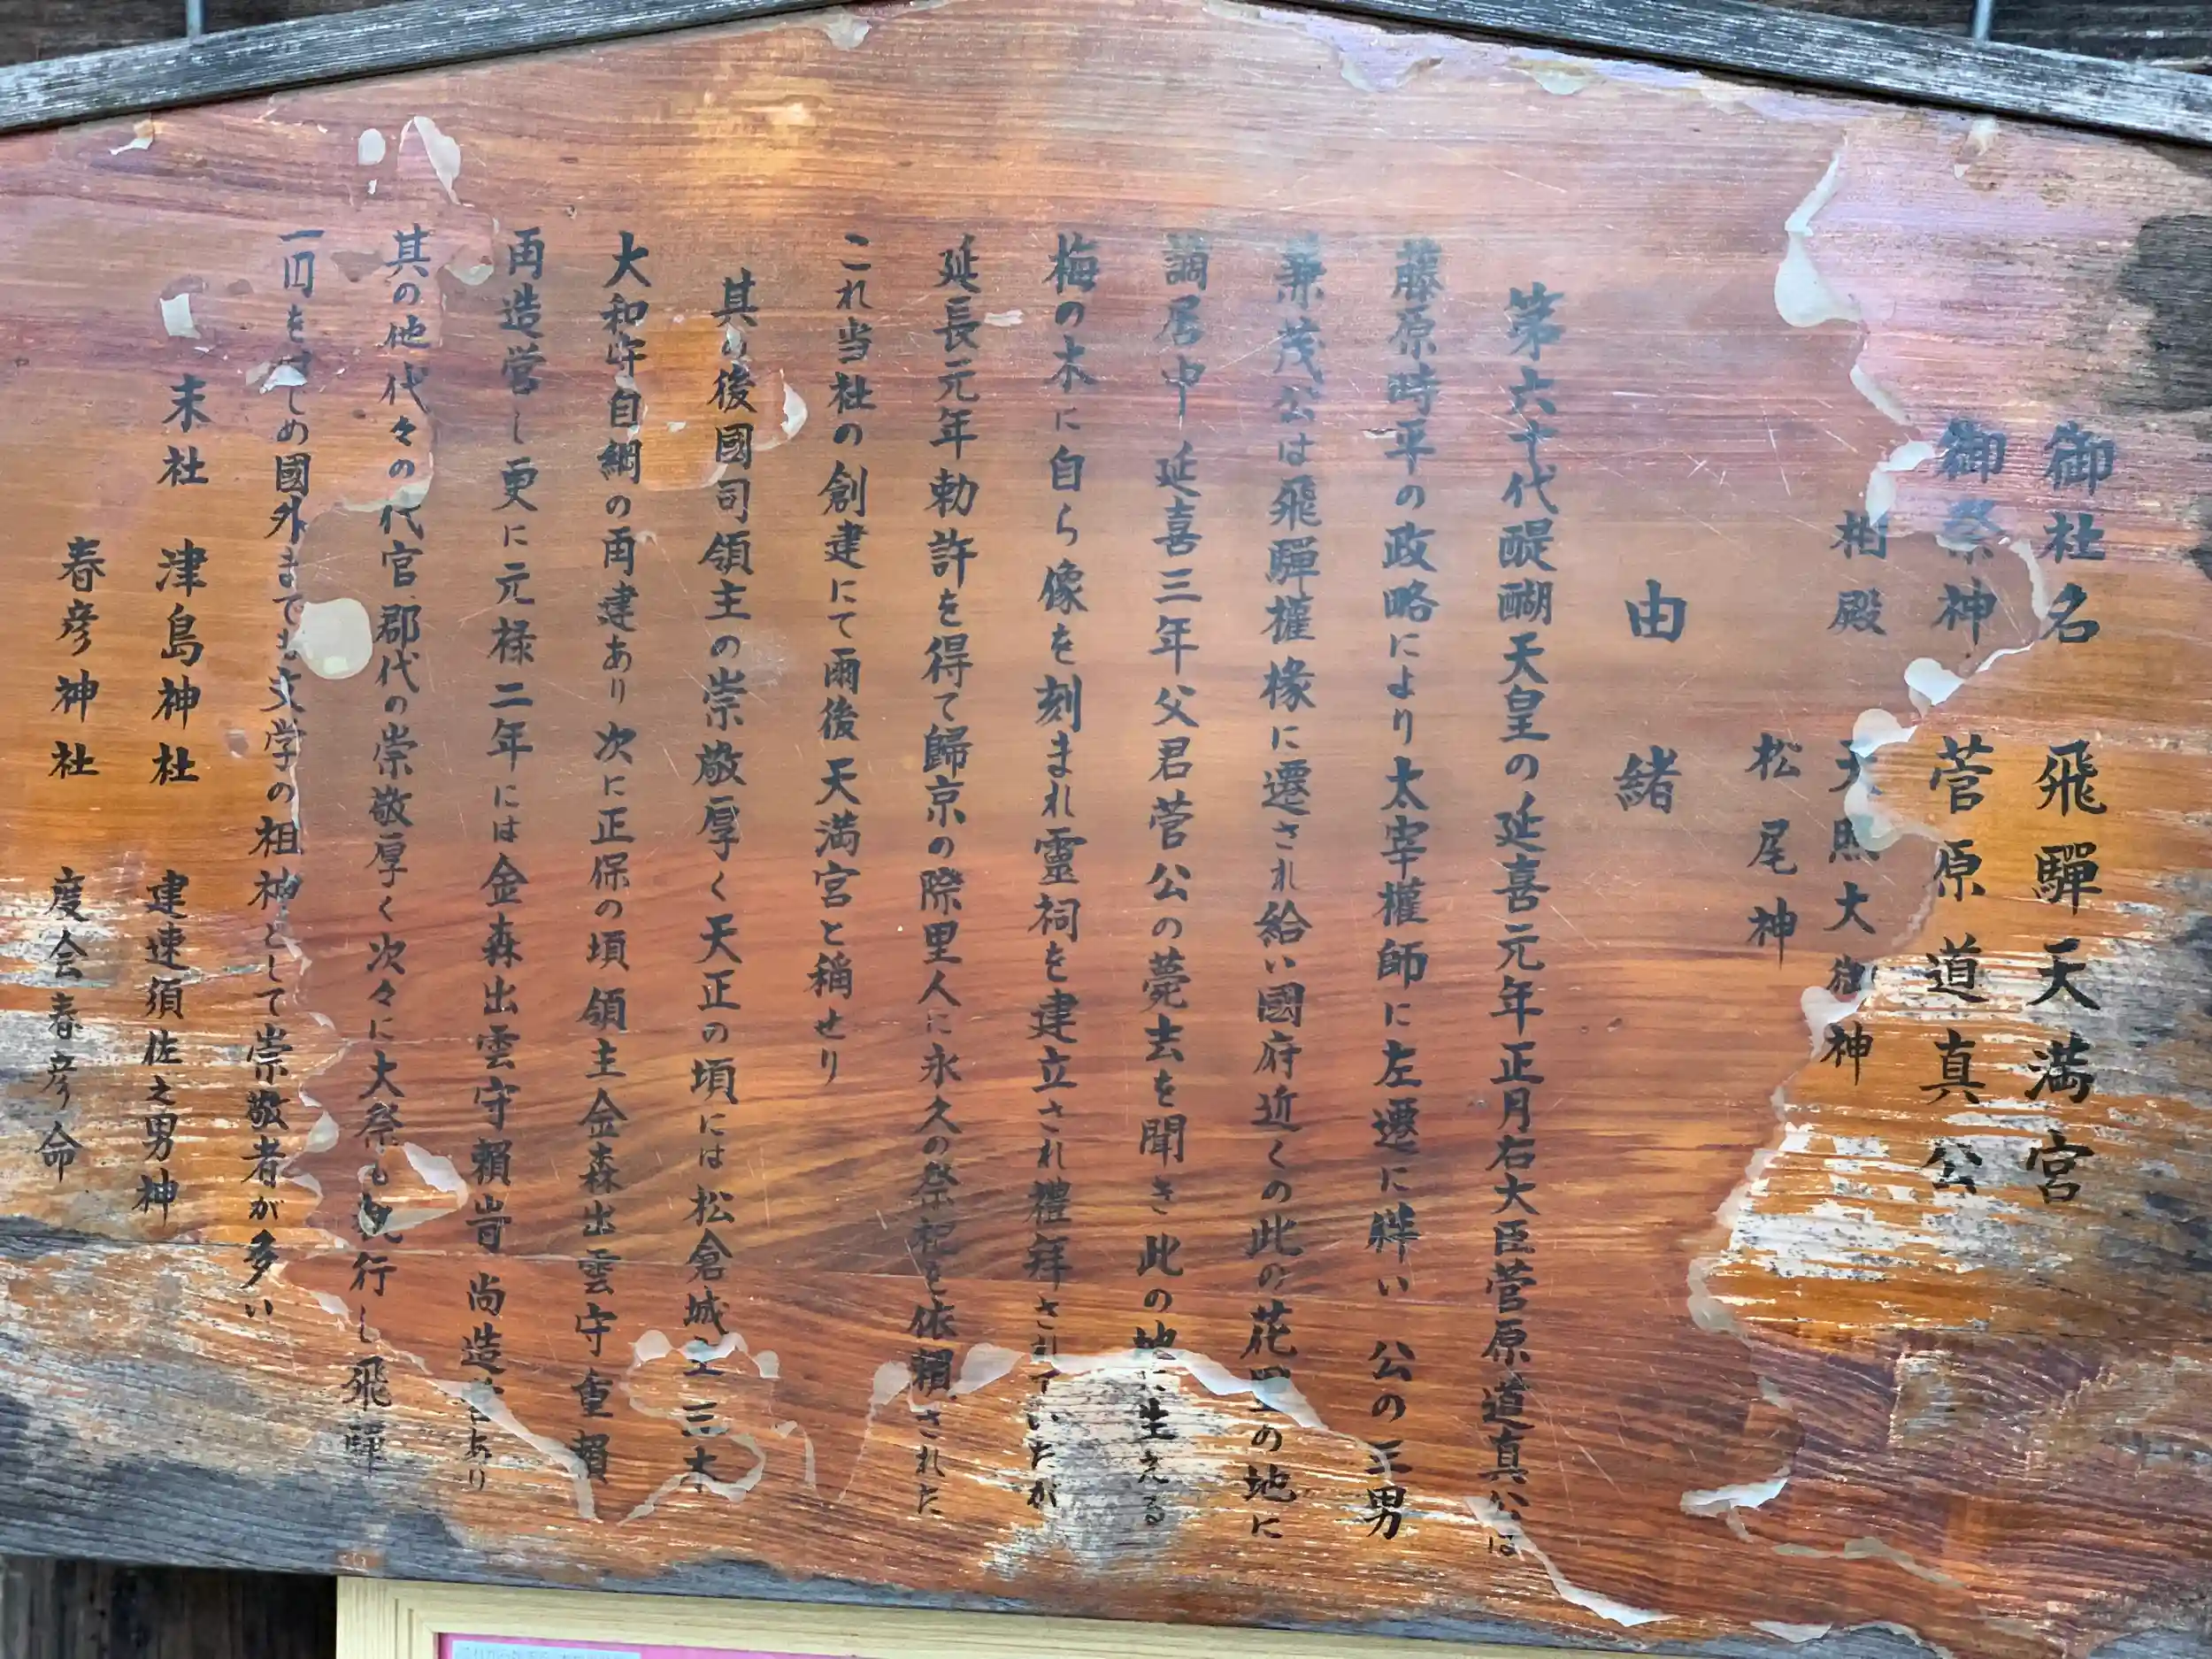 御社名 飛驒天満宮
御祭神 菅原道真公
相殿 天照大御神
松尾神
由緒
第六十代醍醐天皇の延喜元年正月右大臣菅原道真公は
藤原時平の政略により太宰權師に左遷に 公の三男
兼茂公は飛驒權掾に遷され給い國府近くの此の花里の地に
謫居中延喜三年父君菅公の薨去を聞き此の地に生える
梅の木に自ら像を刻まれ靈祠を建立され禮拜されていたが
延長元年勅許を得て歸京の際里人に永久の祭祀を依賴された
これ当社の創建にて爾後天満宮と稱せり
其の後國司領主の崇敬厚く天正の頃には松倉城主三木
大和守自綱の再建あり次に正保の頃領主金森出雲守重賴
再造営し更に元禄二年には金森出雲守賴旹尚造 あり
其の他代々の代官郡代の崇敬厚く次々に大祭も執行し飛驒
一円を はじめ國外までも文学の祖神として崇敬者が多い
末社 津島神社 建速須佐之男神
春彦神社 度会春彦命